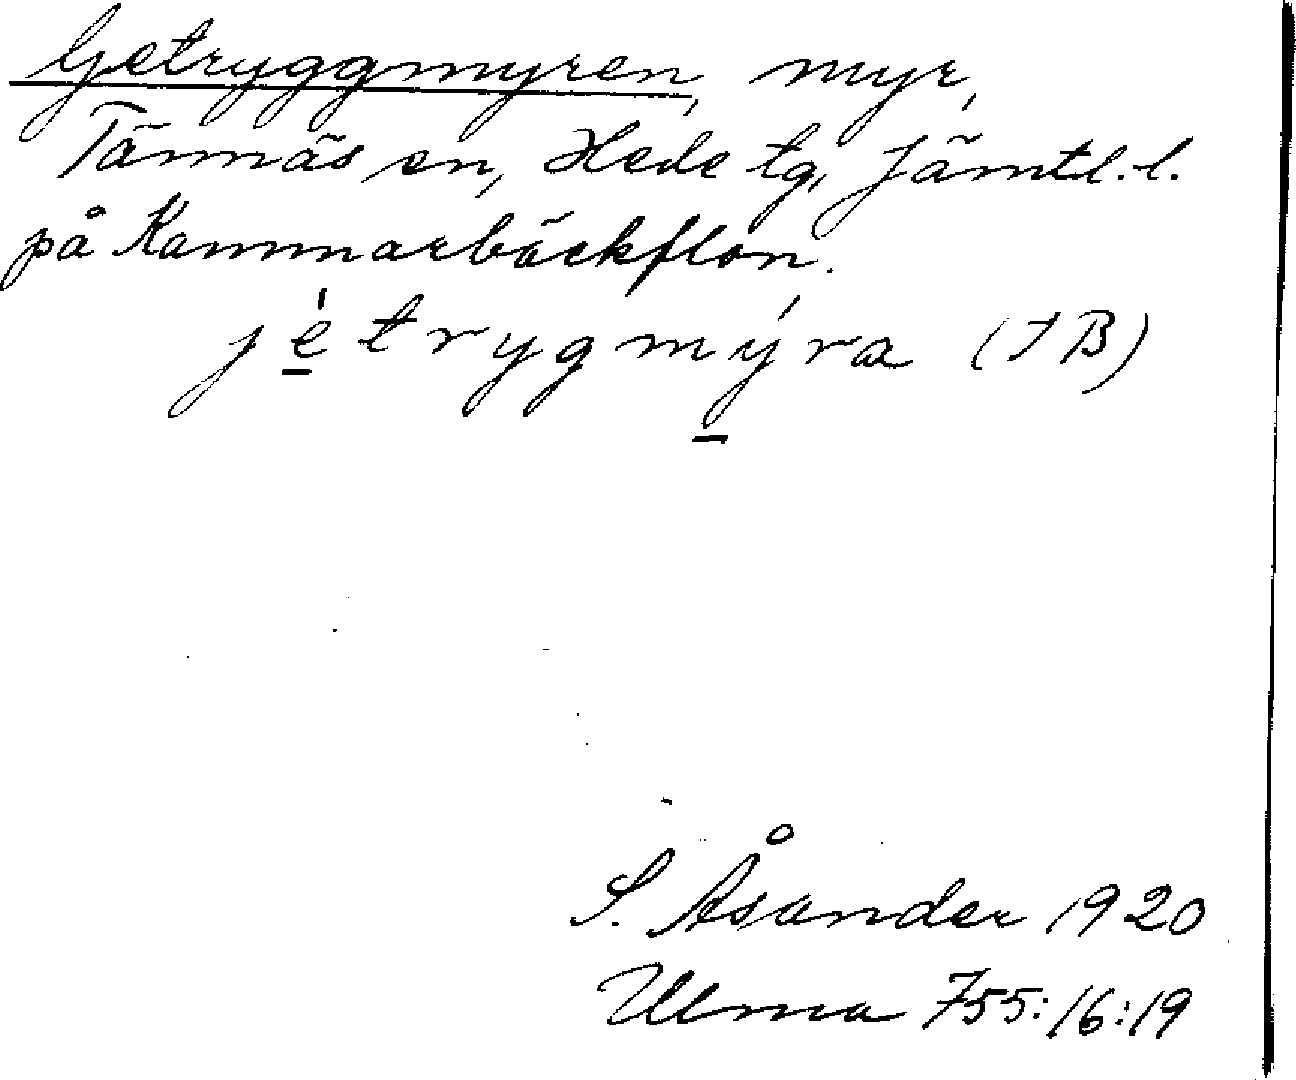 Getryggmyren, myr,
Tännäs sn, Hede tg, Jämtl.l.
på Kammarbäckflon.
jétrygmýra (JB)
S. Åsander 1920
Ulma 755:16:19